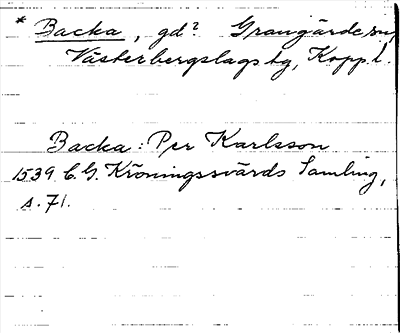 * Backa, gd? Grangärde sn,
Västerbergslags tg, Kopp. l.
Backa: Per Karlsson
1539 C.G. Kröningssvärds Samling,
s. 71.